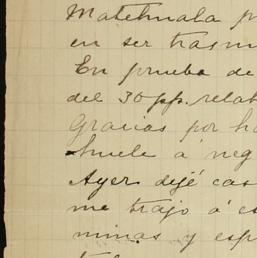 Matehuala p
en ser trasm
En prueba de
del 30 pp. relat
Gracias por ha
huele á neg
Ayer dejé cas
me trajo á es
minas y esp